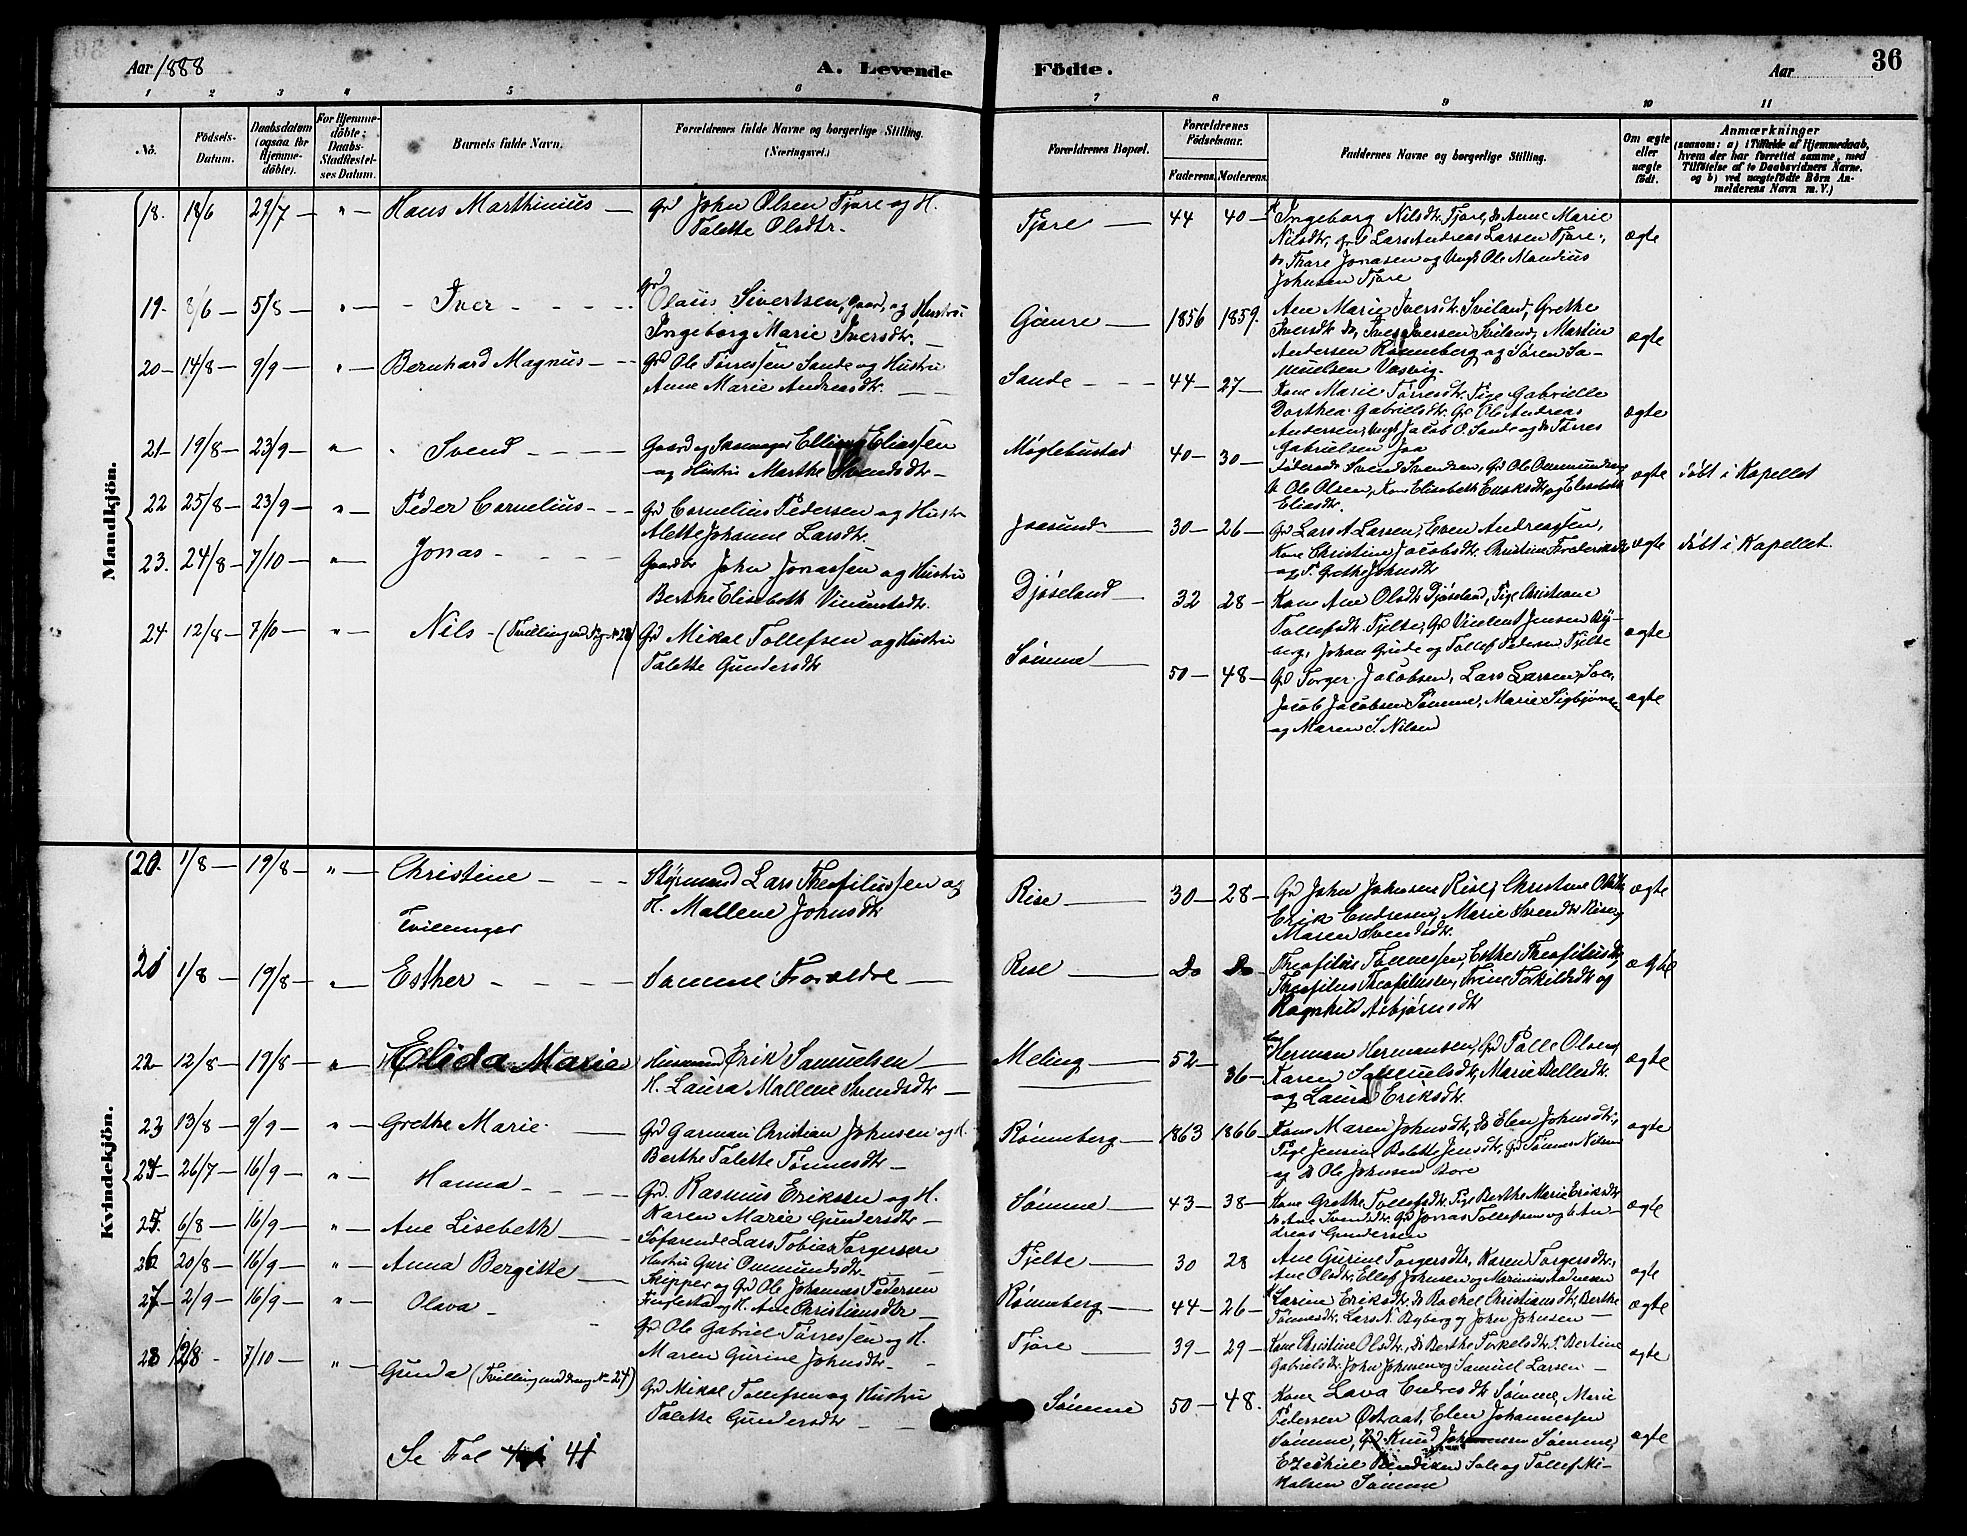 Aar 1888
A. Levende
Födte.
Aar
36
1 2 3 4 5 6 7 8 9 10 11
No.
Födsels-Datum.
Daabsdatum (ogsaa for Hjemmedöbte).
For Hjemmedöbte: Daabs-Stadfæstelses Datum.
Barnets fulde Navn.
Forældrenes fulde Navne og borgerlige Stilling. (Næringsvei.)
Forældrenes Bopæl.
Forældrenes Födselsaar.
Faderens. Moderens.
Faddernes Navne og borgerlige Stilling.
Om ægte eller uægte födt.
Anmærkninger
(saasom: a) i Tilfælde af Hjemmedaab, hvem der har forrettet samme, med Tilföielse af to Daabsvidners Navne, og b) ved uægtefödte Börn Anmelderens Navn m. V.)
Mandkjön.
18. 18/6 29/7 " Hans Marthinius
Gr John Olsen Tjøre og H.
Talette Olsdtr
Tjøre 44 40
Ingeborg Nilsdtr Tjøre, do Anne Marie
Nilsdtr, Lars Andreas Larsen Tjøre,
do Thore Jonasen og Ungk Ole Mandius
Johnsen Tjøre
ægte
19. 8/6 5/8 " Iver
Gr Olaus Sivertsen, Gaard, og Hustru
Ingeborg Marie Iversdtr
Gimre 1856 1859
Ane Marie Iversdtr Sviland, Grethe
Iversdtr do, Iver Iversen Sviland, Martin
Andersen Rønneberg og Søren Sa-
muelsen Vasvig
ægte
20 14/8 9/9 " Bernhard Magnus
Gr Ole Tørressen Sande og Hustru
Anne Marie Andreasdtr
Sande 44 27
Kone Marie Tørresdtr, Pige Gabrielle
Dorthea Gabrielsdtr, Gr Ole Andreas
Andersen, Ungk Jacob O. Sande og do Tørres
Gabrielsen Joa
ægte
21 19/8 23/9 " Svend
Gaard og Elling Eliassen
og Hustru Marthe Svendsdtr
Møglebustad 40 30
Svend Svendsen, Gr Ole Ommundsen
Ole Olsen, Kone Elisabeth og Elisabeth
Eliasdtr
ægte døbt i Kapellet
22 25/8 23/9 " Peder Cornelius
Gr Cornelius Pedersen og Hustru
Alette Johanne Larsdtr
Joasund 30 26
Gr Lars A Larsen, Even Andreassen,
Kone Christine Jacobsdtr Christine Frederiksdtr
og P. Grethe Johnsdtr
ægte døbt i Kapellet.
23. 24/8 7/10 " Jonas
Gaardbr John Jonassen og Hustru
Berthe Elisebeth Vincentsdtr.
Djøseland 32 28
Kone Ane Olsdtr Djøseland, Pige Christiane
Tollefsdtr Tjelte, Gr Vincent Jensen By-
berg, Johan Grude og Tollef Pedersen Tjelte
ægte
24 12/8 7/10 " Nils (Tvilling med Pige No 28)
Gr Mikal Tollefsen og Hustru
Talette Gundersdtr
Sømme 50 48
Gr Torger Jacobsen, Lars Larsen Sole,
Jacob Jacobsen Sømme, Marie Sigbjørnsen
og Maren S. Nilsen
ægte
Kvindekjön.
20. 1/8 19/8 " Christine
Tvillinger
Styrmand Lars Theofilussen og
H. Mallene Johnsdtr
Rise 30 28
Gr John Johnsen Rise, Christine Olsdtr
Erik Endresen, Marie Svendsdtr Rise,
Maren Svendsdtr
ægte
21 1/8 19/8 " Esther
Samme Forældre
Rise Do Do
Theofilus Tønnessen, Esther Theofilusdtr,
Theofilus Theofilussen, Trine Torkildsdtr og
Ragnhild Asbjørnsdtr
ægte
22 12/8 19/8 " Elida Marie
Husmand Erik Samuelsen
H. Laura Mallene Svendsdtr
Meling 52 36
Herman Hermansen, Gr Palle Olsen,
Karen Samuelsdtr, Marie Pellesdtr
og Laura Eriksdtr
ægte
23 13/8 9/9 " Grethe Marie
Gr Garman Christian Johnsen og H.
Berthe Talette Tønnesdtr
Rønneberg 1863 1866
Kone Maren Johnsdtr, do Elen Johnsdtr,
Pige Jensine Bolette Jensdtr, Gr Tønnes Nilsen
og do Ole Johnsen Bore
ægte
24 26/7 16/9 " Hanna
Gr Rasmus Eriksen og H.
Karen Marie Gundersdtr
Sømme 43 38
Kone Grethe Tollefsdtr, Pige Berthe Marie Eriksdtr
do Ane Svendsdtr, Gr Jonas Tollefsen og An-
dreas Gundersen
ægte
25 6/8 16/9 " Ane Lisebeth
Søfarende Lars Tobias Torgersen
Hustru Guri Ommundsdtr
Tjelte 30 28
Ane Gurine Torgersdtr, Karen Torgersdtr,
Ane Olsdtr, Ellef Johnsen og Marinius Andresen
ægte
26 20/8 16/9 " Anna Bergitte
Skipper og Gr Ole Johannes Pedersen
og H. Ane Christiansdtr
Rønneberg 44 26
Karine Eriksdtr, do Rachel Christiansdtr, Berthe
Tønnesdtr, Lars N. Byberg og John Johnsen
ægte
27 2/9 16/9 " Olava
Gr Ole Gabriel Tørressen og H.
Maren Gurine Johnsdtr
Tjøre 39 29
Kone Christine Olsdtr, do Berthe Torkelsdtr, P. Bertine
Gabrielsdtr, John Johnsen og Samuel Larsen
ægte
28 12/8 7/10 " Gunda (Tvilling med dreng No 24)
Gr Mikal Tollefsen og Hustru
Talette Gundersdtr
Sømme 50 48
Kone Lava Endresdtr Sømme, Marie
Pedersen Østraat, Elen Johannessen
Sømme, Gr Knud Johannesen Sømme,
Ezechiel Sole og Tollef Mi-
kalsen Sømme
ægte
Se Fol 41